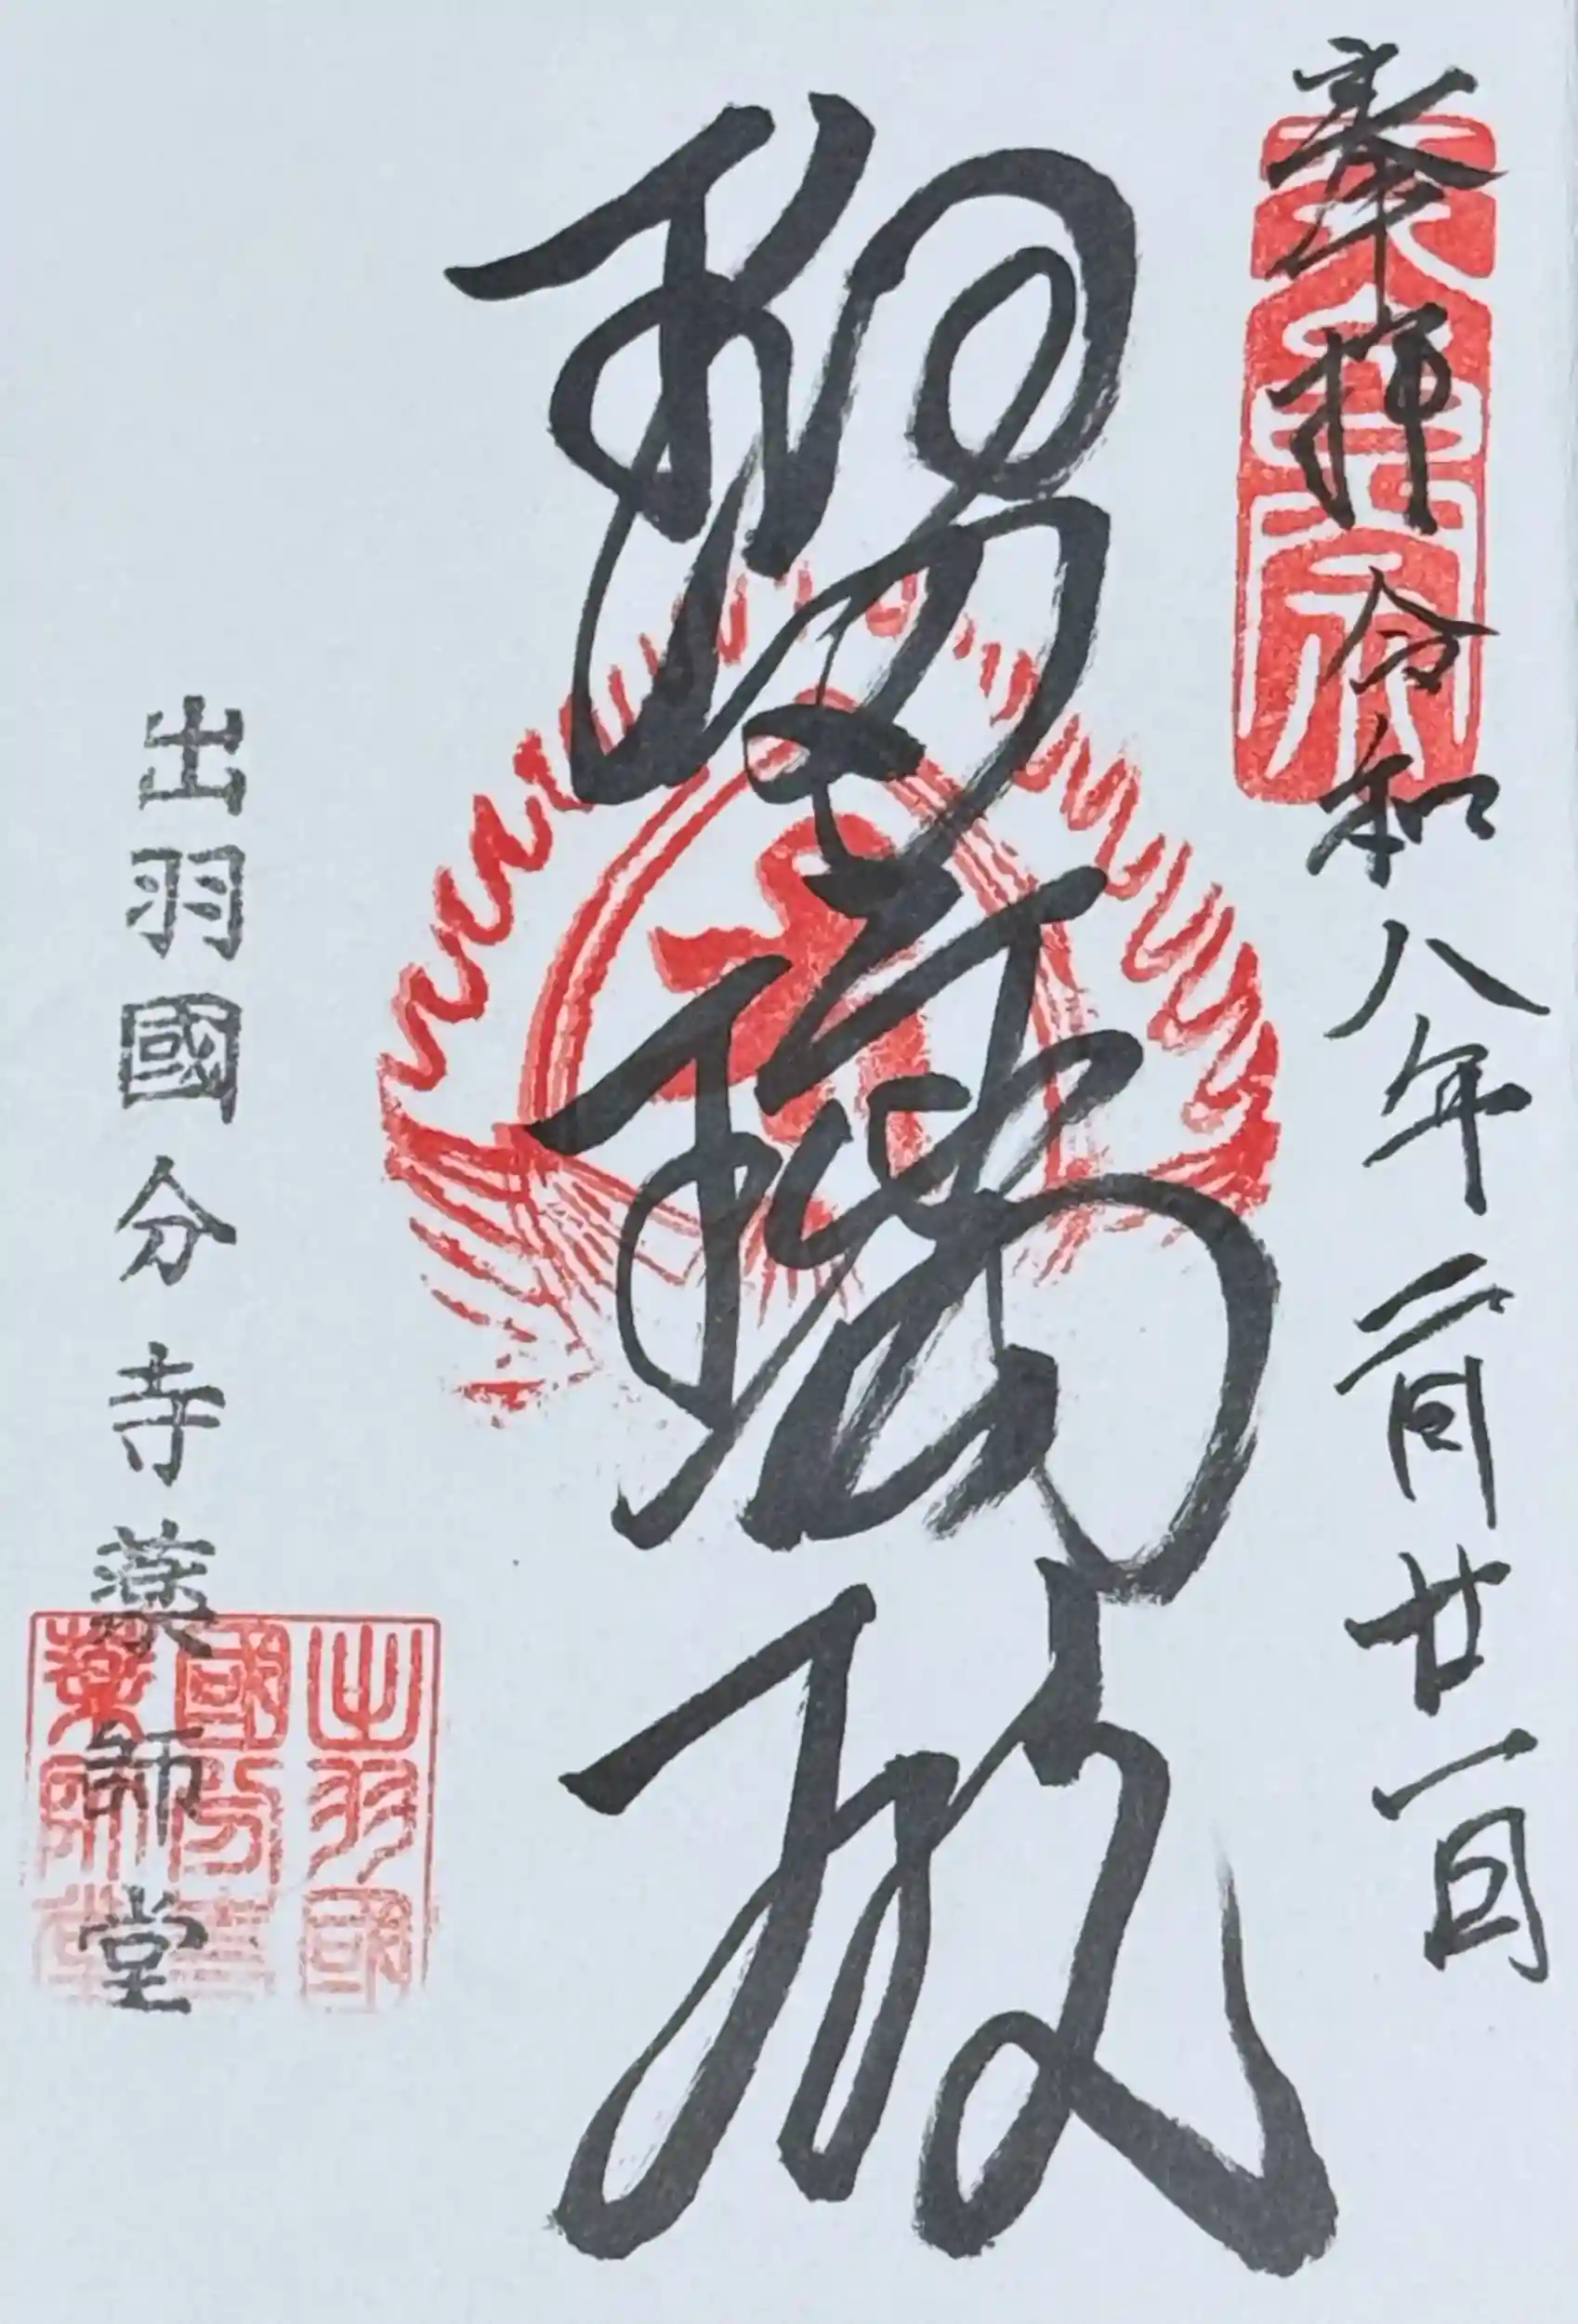 奉拝 令和八年二月廿一日
瑠璃殿
出羽國分寺薬師堂
出羽國
國分寺
薬師堂